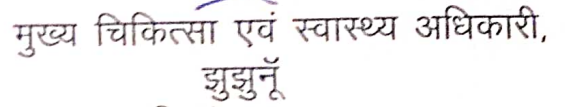 मुख्य चिकित्सा एवं स्वास्थ्य अधिकारी,
झुझुनूॅं